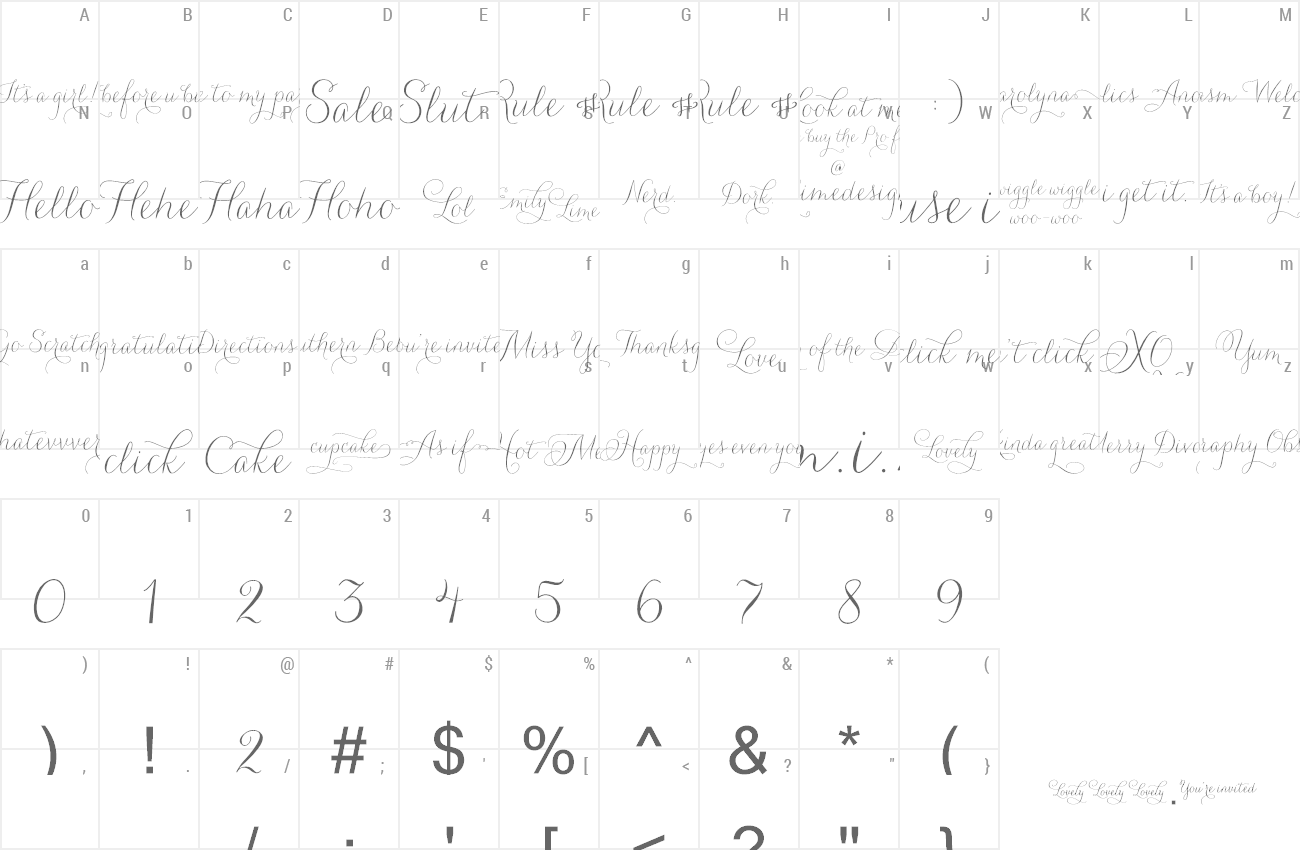 A B C D E F G H I J K L M
It's a girl! before u be to my pa Sale Slut Rule # Rule # Rule # look at me : ) arolyna lics And asm Welco
N O P Q R S T U V W X Y Z
buy the Pro f
@
Hello Hehe Haha Hoho Lol Emily Lime Nerd. Dork. imedesig use i wiggle wiggle i get it. It's a boy!
woo-woo
a b c d e f g h i j k l m
Go Scratch gratulati Directions uthern Be ou're invite Miss Yo Thanksg Love of the D click me 't click XO Yum
n o p q r s t u v w x y z
hatevvver click Cake cupcake As if Hot Me Happy yes even you n.i.. Lovely inda great Merry Div oraphy Obs
0 1 2 3 4 5 6 7 8 9
0 1 2 3 4 5 6 7 8 9
) ! @ # $ % ^ & * (
) ! 2 # $ % ^ & * (
, . / ; ' [ < ? " }
Lovely Lovely Lovely . You're invited
/ ; ' [ < ? " }